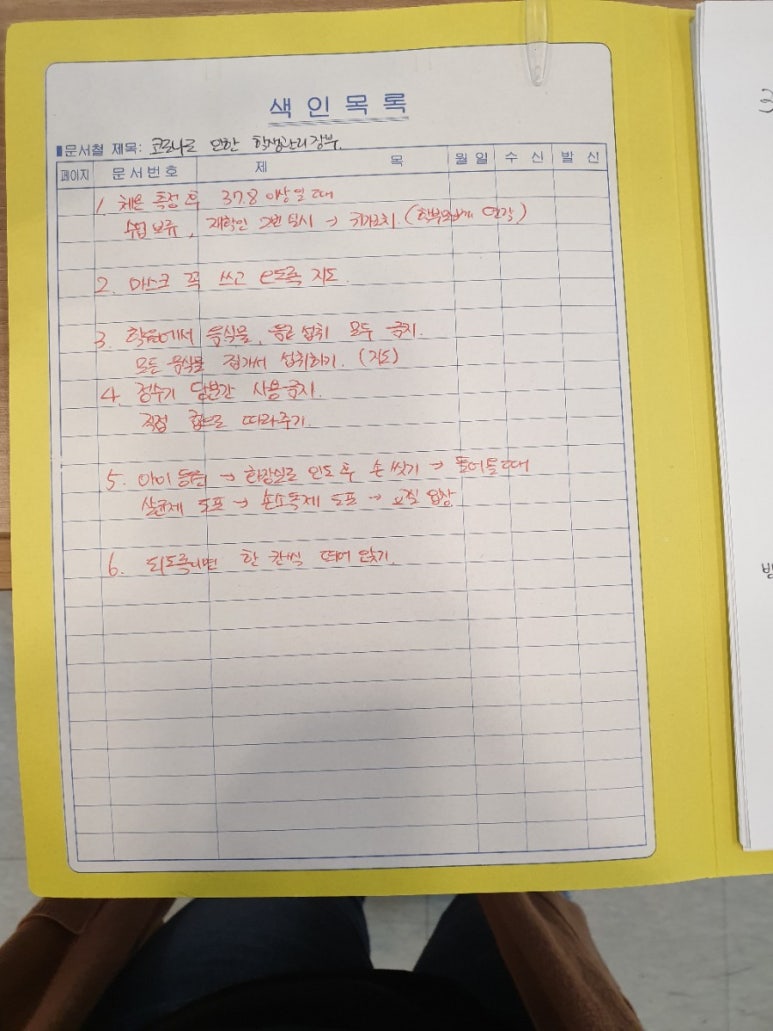 색인목록
문서철 제목: 코로나로 인한 학생관리 장부.
페이지 문서번호 제 목 월일 수신 발신
1. 체온 측정 후 37.8 이상일 때
수업 보류, 재확인 2번 되시 → 귀가조치. (학부모님께 연락)
2. 마스크 꼭 쓰고 있도록 지도.
3. 학원에서 음식물, 음료 섭취 모두 금지.
모든 음식물 집가서 섭취하기. (지도)
4. 정수기 당분간 사용금지.
직접 컵으로 따라주기.
5. 아이 등원 → 화장실로 인도 후 손 씻기 → 들어올때
살균제 도포 → 손소독제 도포 → 교실 입장
6. 되도록이면 한 칸씩 띄어 앉기.